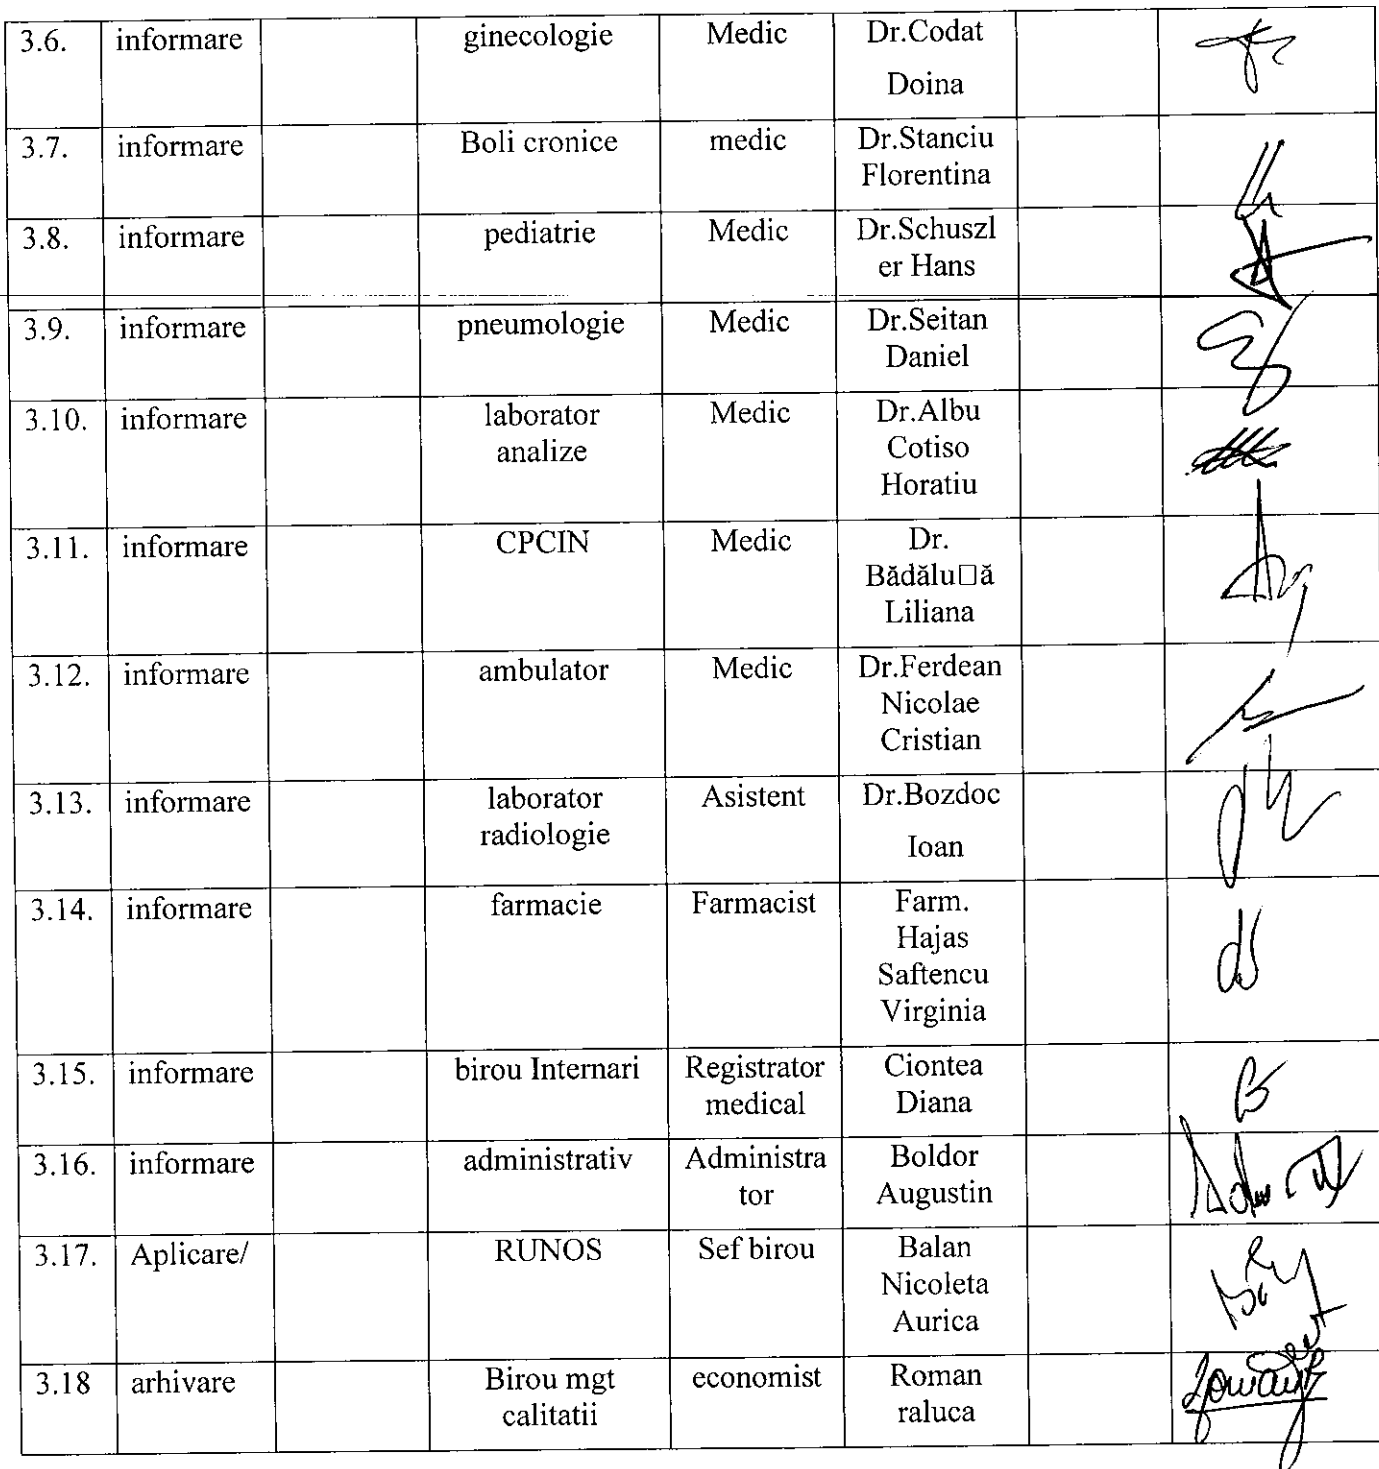 3.6. informare ginecologie Medic Dr.Codat
Doina
3.7. informare Boli cronice medic Dr.Stanciu
Florentina
3.8. informare pediatrie Medic Dr.Schuszl
er Hans
3.9. informare pneumologie Medic Dr.Seitan
Daniel
3.10. informare laborator Medic Dr.Albu
analize Cotiso
Horatiu
3.11. informare CPCIN Medic Dr.
Bădălu□ă
Liliana
3.12. informare ambulator Medic Dr.Ferdean
Nicolae
Cristian
3.13. informare laborator Asistent Dr.Bozdoc
radiologie Ioan
3.14. informare farmacie Farmacist Farm.
Hajas
Saftencu
Virginia
3.15. informare birou Internari Registrator Ciontea
medical Diana
3.16. informare administrativ Administra Boldor
tor Augustin
3.17. Aplicare/ RUNOS Sef birou Balan
Nicoleta
Aurica
3.18 arhivare Birou mgt economist Roman
calitatii raluca